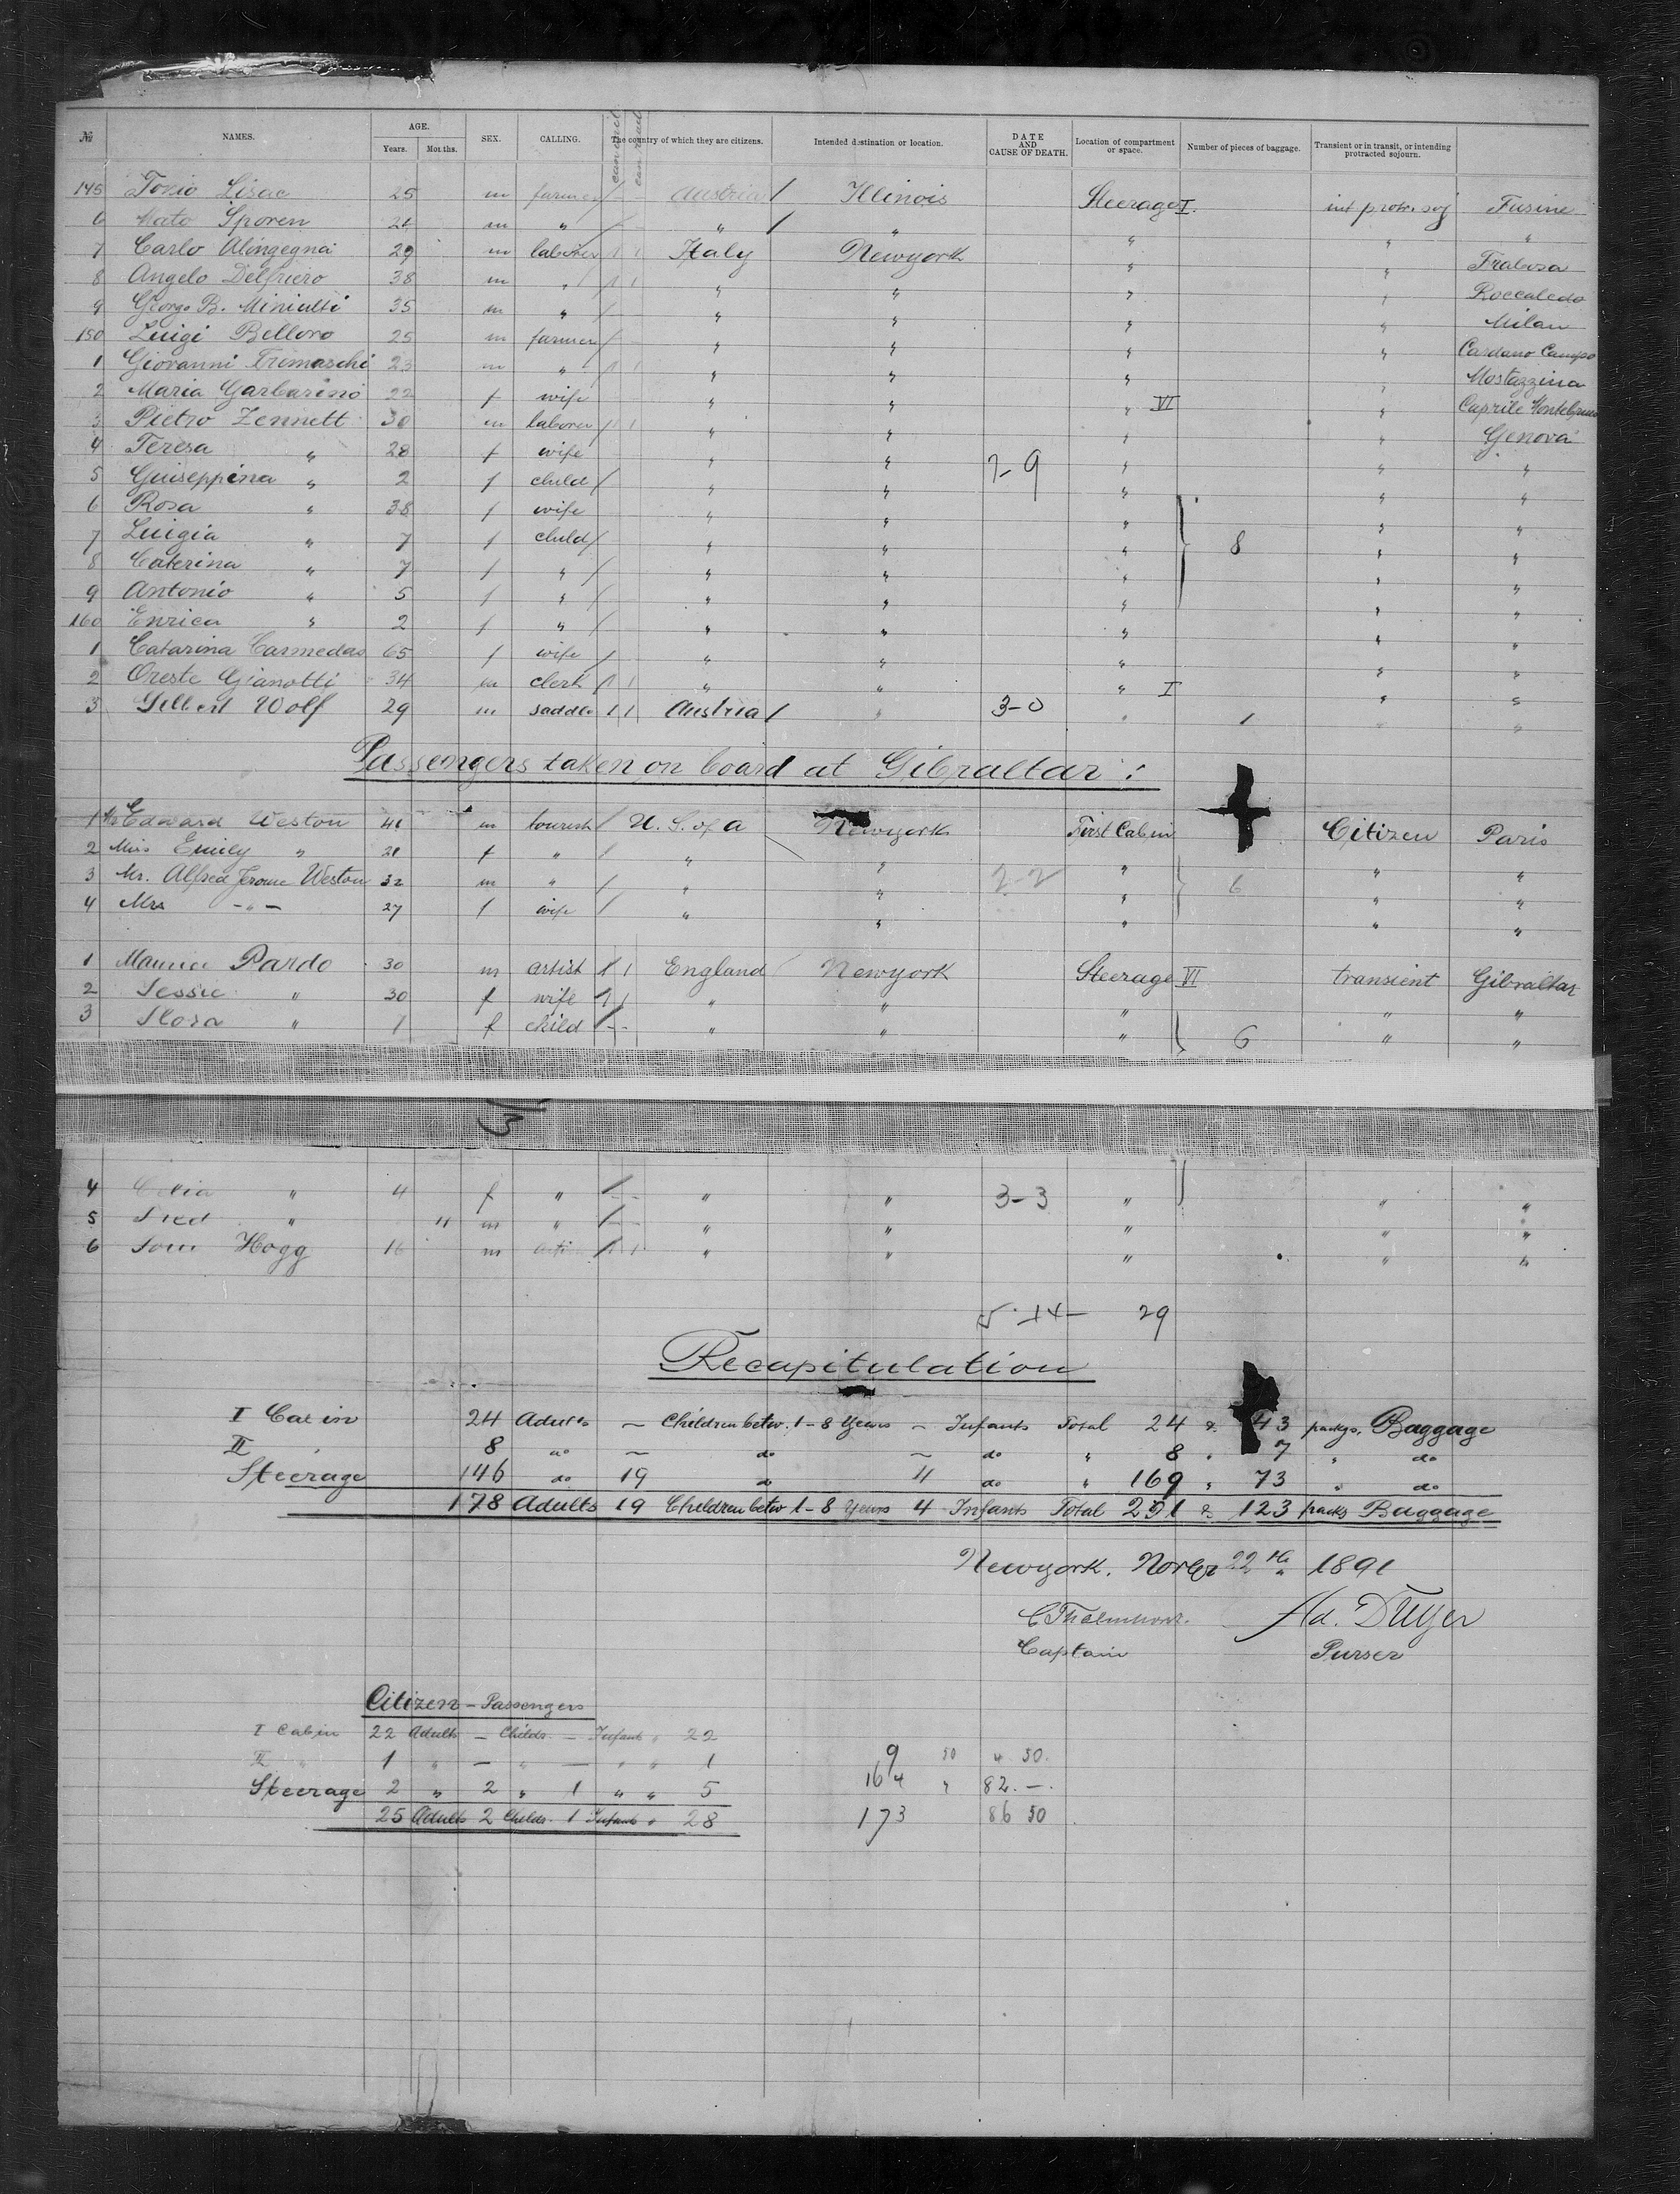 № NAMES. AGE. Years. Months. SEX. CALLING. The country of which they are citizens. Intended destination or location. DATE AND CAUSE OF DEATH. Location of compartment or space. Number of pieces of baggage. Transient or in transit, or intending protracted sojourn.
145 Lisac 25 m farmer Austria Illinois Steerage I. int protr. soj Fusine
6 Mato Sporen 24 m " " " " " "
7 Carlo Alingegna 29 m laborer Italy Newyork " " Frabosa
8 Angelo Delfriero 38 m " " " " " Roccaledo
9 George B. Miniutti 35 m " " " " " Milan
150 Luigi Belloro 25 m farmer " " " " Cardano Campo
1 Giovanni Trimaschi 23 m " " " " " Mostazzina
2 Maria Garbarino 22 f wife " " " VI " Caprile
3 Pietro Zennett 30 m laborer " " " " Genova
4 Teresa " 28 f wife " " 7-9 " " "
5 Guiseppina " 2 f child " " " " "
6 Rosa " 38 f wife " " " " "
7 Luigia " 7 f child " " " 8 " "
8 Caterina " 7 f " " " " " "
9 Antonio " 5 f " " " " " "
160 Enrica " 2 f " " " " " "
1 Catarina Carmedas 65 f wife " " " " "
2 Oreste Gianotti 34 m clerk " " " I " "
3 Wolf 29 m saddler Austria " 3-0 " 1 " "
Passengers taken on board at Gibraltar :
1 Mr Edward Weston 41 m tourist U. S. of a Newyork First Cabin Citizen Paris
2 Miss Emily " 21 f " " " " " "
3 Mr. Alfred Jerome Weston 32 m " " " 2-2 " 6 " "
4 Mrs -"- 27 f wife " " " " "
1 Pardo 30 m artist England Newyork Steerage VI transient Gibraltar
2 Jessie " 30 f wife " " " " "
3 Flora " 1 f child " " " 6 " "
4 Celia " 4 f " " " 3-3 " " "
5 Fred " 11 m " " " " " "
6 Tom Hogg 16 m " " " " "
5-14- 29
Recapitulation
I Cabin 24 Adults - Children betw. 1-8 Years - Infants Total 24 & 43 packgs. Baggage
II " 8 do - do - do " 8 " 7 " do
Steerage 146 do 19 do 4 do " 169 " 73 " do
178 Adults 19 Children betw 1-8 Years 4 Infants Total 201 & 123 packs Baggage
Newyork. Novbr 22th 1891
Captain Purser
Citizen - Passengers
I Cabin 22 Adults - Childs - Infants " 22
II " 1 " - " - " " 1
Steerage 2 " 2 " 1 " " 5
25 Adults 2 Childs 1 Infants " 28
9 50 4 50.
164 " 82.-.
173 86 50